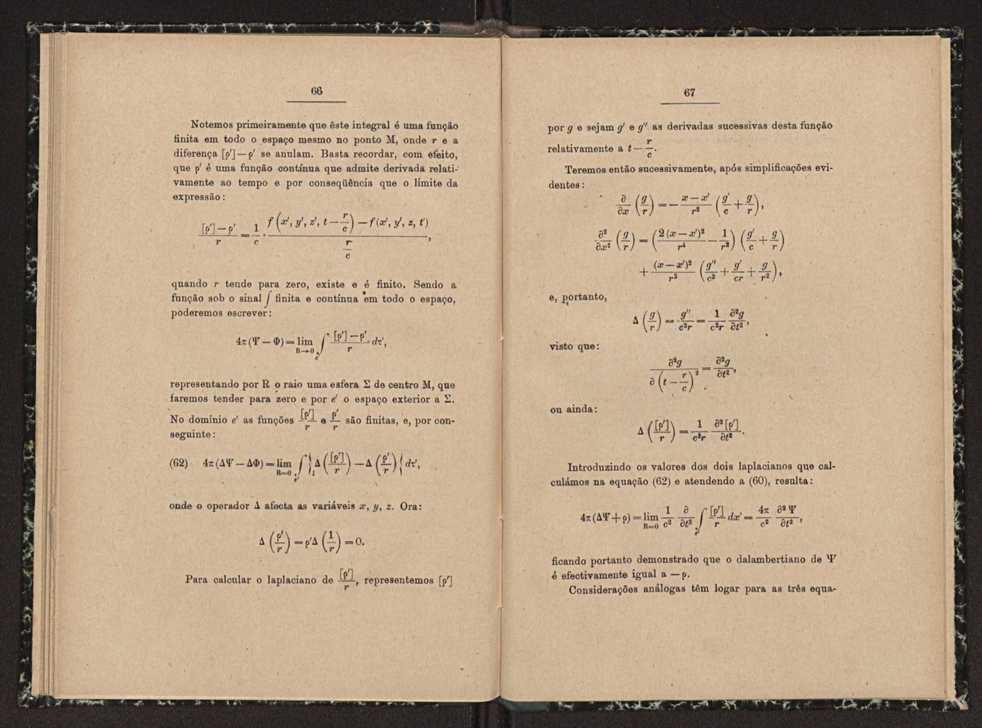 66
Notemos primeiramente que êste integral é uma função
finita em todo o espaço mesmo no ponto M, onde r e a
diferença [ρ']—ρ' se anulam. Basta recordar, com efeito,
que ρ' é uma função contínua que admite derivada relati-
vamente ao tempo e por conseqüência que o limite da
expressão:
[ρ']—ρ' / r = 1/c · (f(x', y', z', t — r/c) — f(x', y', z, t')) / (r/c),
quando r tende para zero, existe e é finito. Sendo a
função sob o sinal ∫ finita e contínua em todo o espaço,
poderemos escrever:
4π(Ψ — Φ) = lim R→0 ∫e' ([ρ']—ρ')/r dτ',
representando por R o raio uma esfera Σ de centro M, que
faremos tender para zero e por e' o espaço exterior a Σ.
No domínio e' as funções [ρ']/r e ρ'/r são finitas, e, por con-
seguinte:
(62) 4π(ΔΨ — ΔΦ) = lim R=0 ∫e' { Δ([ρ']/r) — Δ(ρ'/r) } dτ',
onde o operador Δ afecta as variáveis x, y, z. Ora:
Δ(ρ'/r) = ρ'Δ(1/r) = 0.
Para calcular o laplaciano de [ρ']/r, representemos [ρ']
67
por g e sejam g' e g'' as derivadas sucessivas desta função
relativamente a t — r/c.
Teremos então sucessivamente, após simplificações evi-
dentes:
∂/∂x (g/r) = — (x — x')/r² (g'/c + g/r),
∂²/∂x² (g/r) = (2(x — x')²/r⁴ — 1/r²) (g'/c + g/r)
+ (x — x')²/r³ (g''/c² + g'/cr + g/r²),
e, portanto,
Δ(g/r) = g''/c²r = 1/c²r ∂²g/∂t²,
visto que:
∂²g / ∂(t — r/c)² = ∂²g/∂t²,
ou ainda:
Δ([ρ']/r) = 1/c²r ∂²[ρ']/∂t².
Introduzindo os valores dos dois laplacianos que cal-
culámos na equação (62) e atendendo a (60), resulta:
4π(ΔΨ + ρ) = lim R=0 1/c² ∂/∂t² ∫e' [ρ']/r dx' = 4π/c² ∂²Ψ/∂t²,
ficando portanto demonstrado que o dalambertiano de Ψ
é efectivamente igual a — ρ.
Considerações análogas têm logar para as três equa-